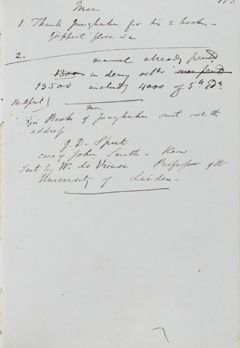 113
Mem
1. Thank Junghuhn for his 2 books -
2.
manual already printed
13500 including 4000 of 5th Ed.
14 april
mem
Books of Junghuhn sent with the
address
J. D. Spect
care of John Smith - Kew
Sent by W. de Vriese Professor of the
University of Leiden -